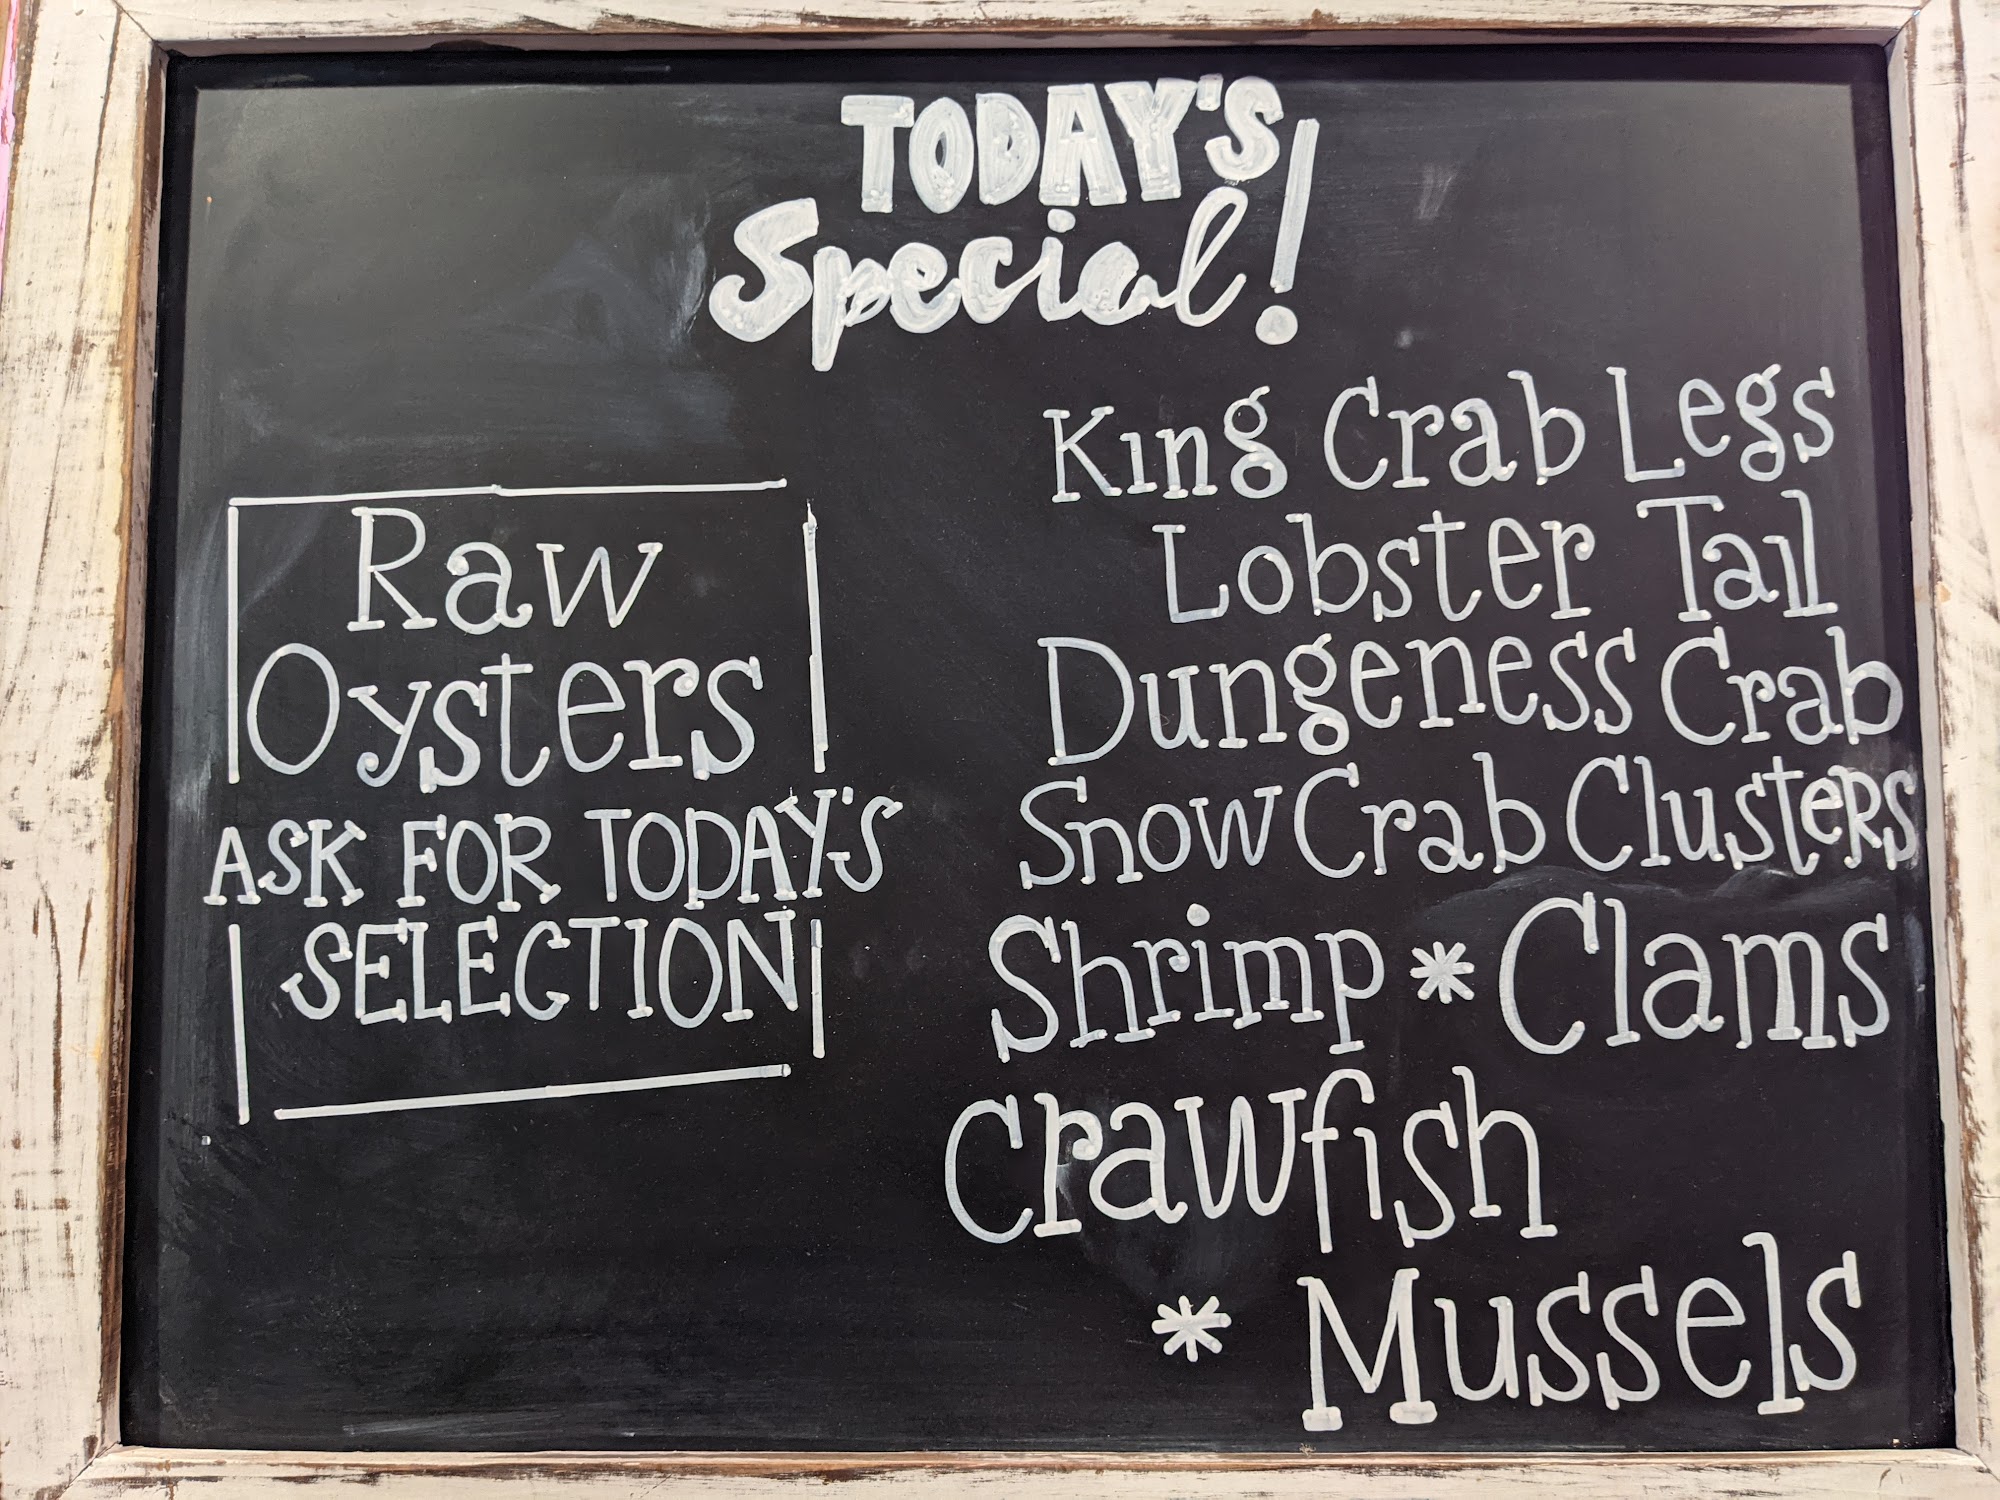 TODAY'S
Special!
Raw
Oysters
ASK FOR TODAY'S
SELECTION
King Crab Legs
Lobster Tail
Dungeness Crab
Snow Crab Clusters
Shrimp * Clams
Crawfish
* Mussels